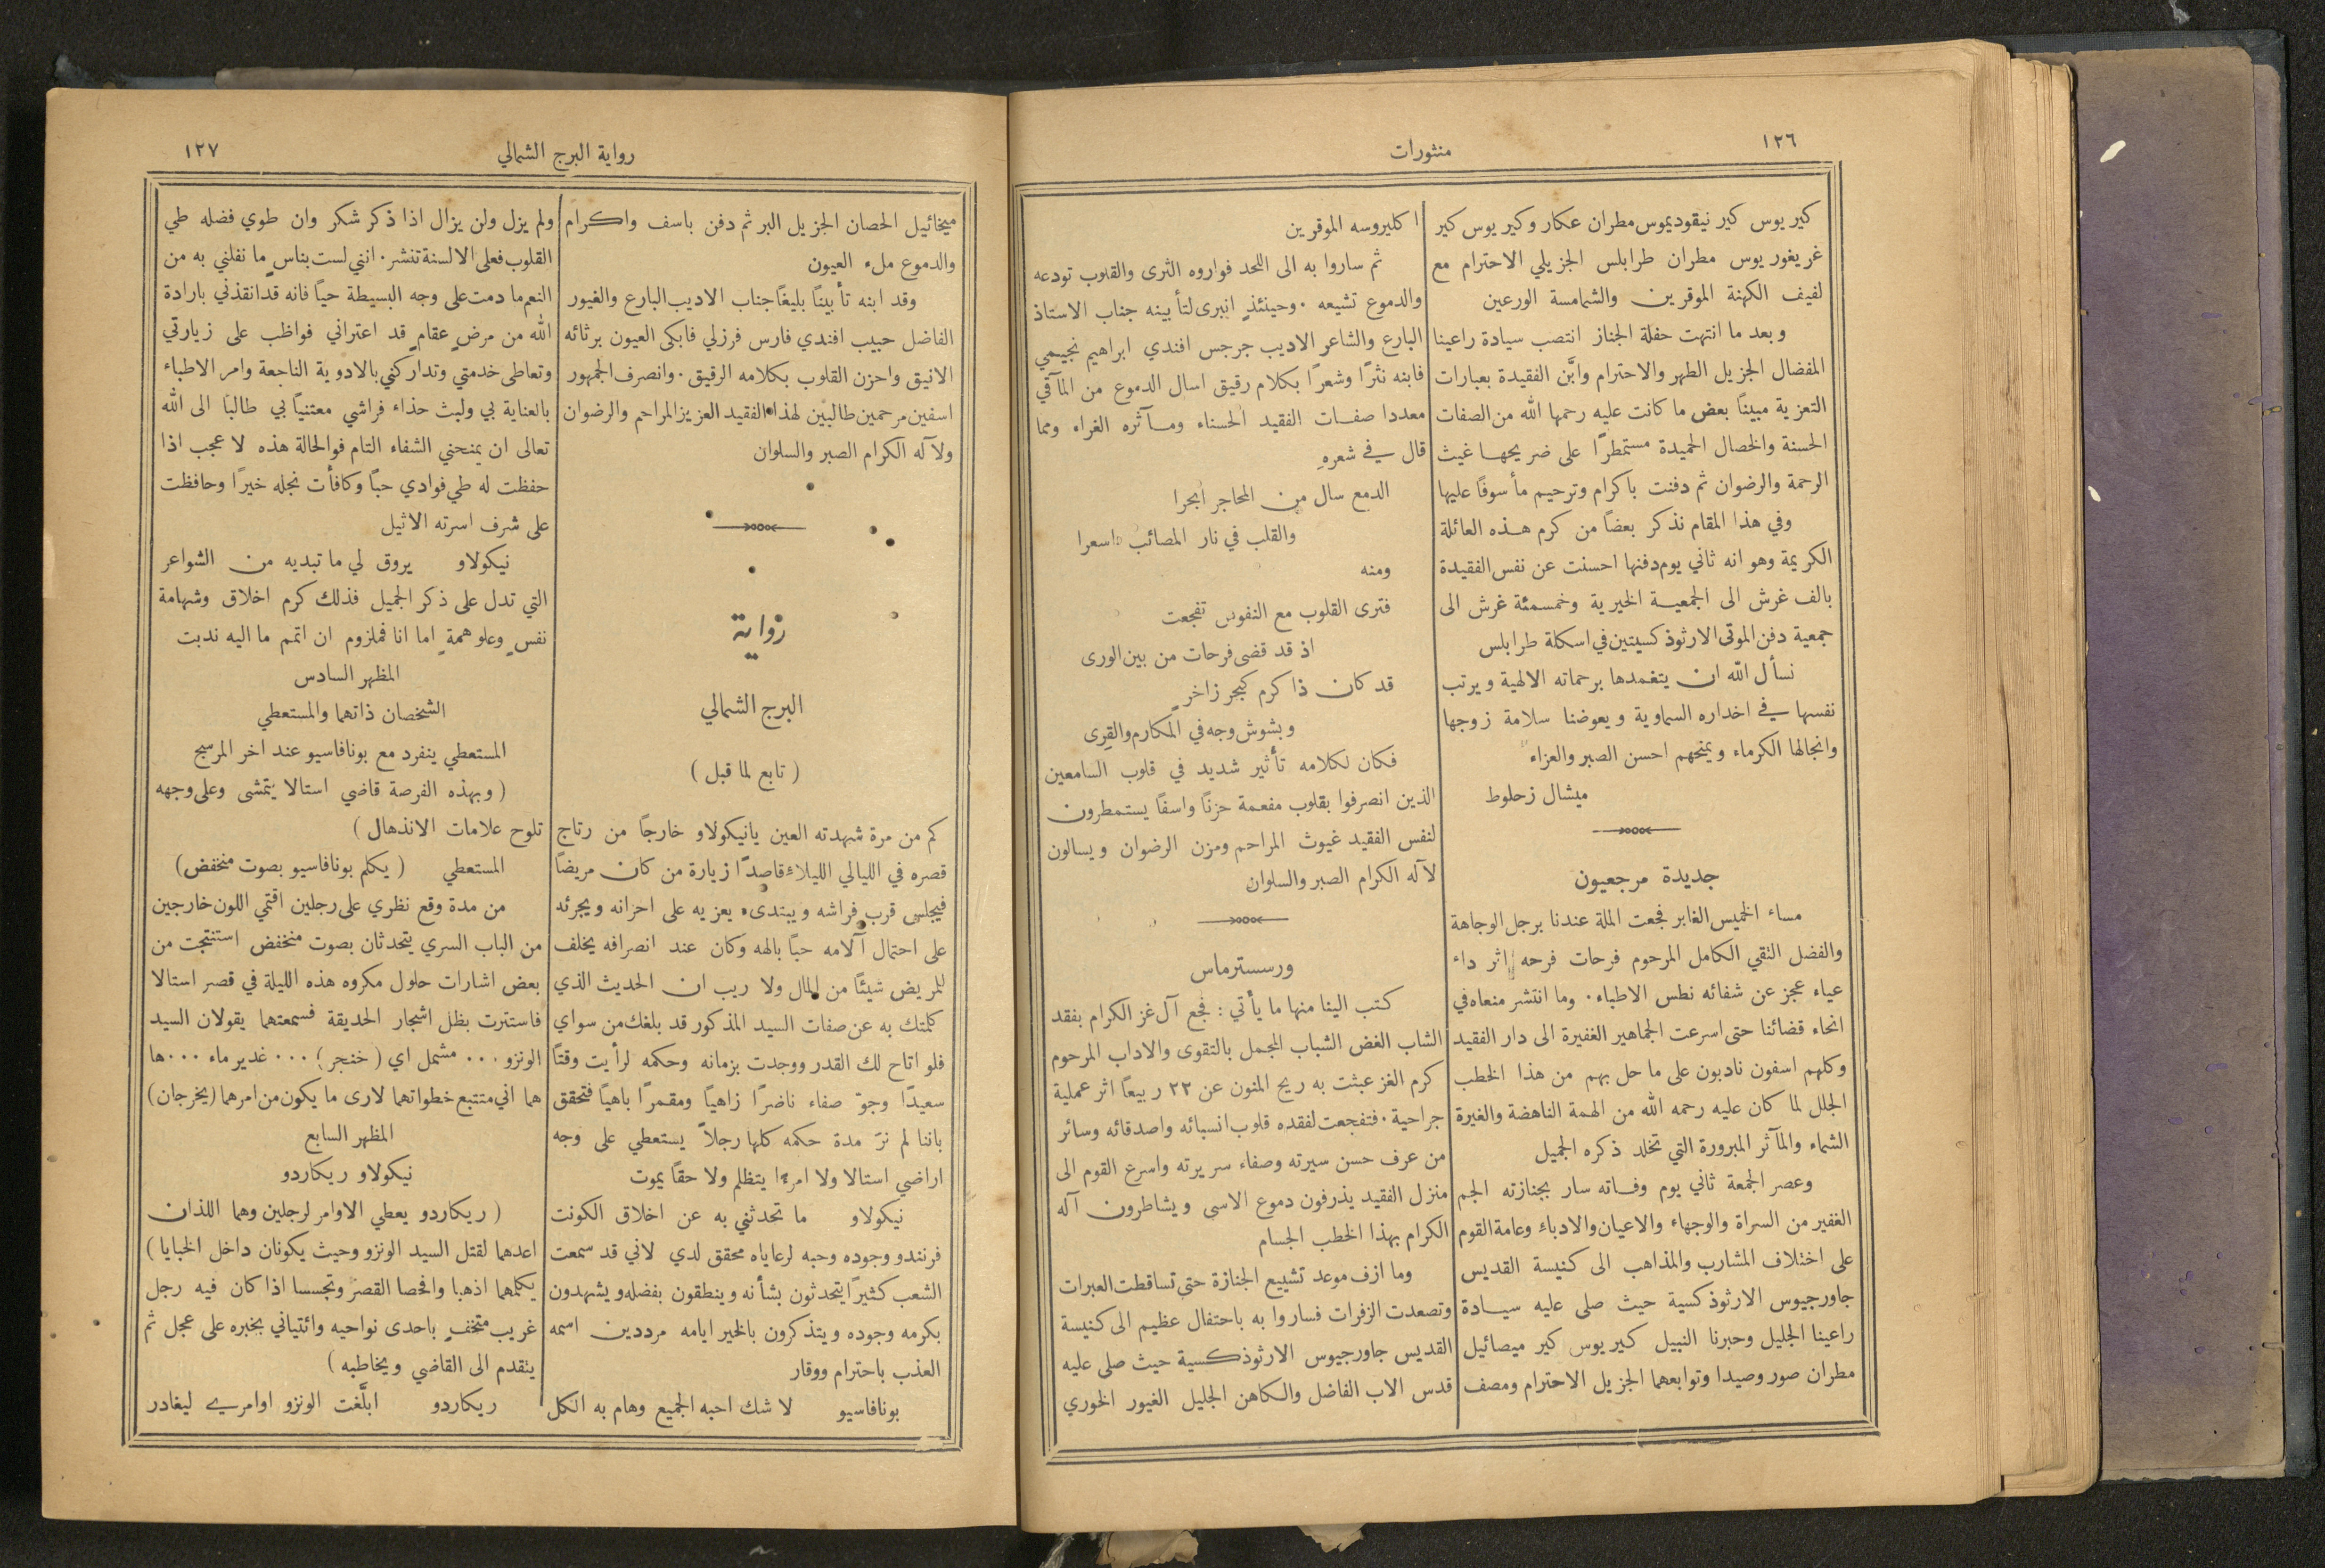 ١٢٦
منثورات
كيريوس كير نيقوديموس مطران عكار وكيريوس كير
غريغوريوس مطران طرابلس الجزيلي الاحترام مع
لفيف الكهنة الموقرين والشمامسة الورعين
وبعد ما انتهت حفلة الجناز انتصب سيادة راعينا
المفضال الجزيل الطهر والاحترام وابَّن الفقيدة بعبارات
التعزية مبيناً بعض ما كانت عليه رحمها الله من الصفات
الحسنة والخصال الحميدة مستمطرًا على ضريحها غيث
الرحمة والرضوان ثم دفنت باكرام وترحيم مأسوفًا عليها
وفي هذا المقام نذكر بعضاً من كرم هذه العائلة
الكريمة وهو انه ثاني يوم دفنها احسنت عن نفس الفقيدة
بالف غرش الى الجمعية الخيرية وخمسمئة غرش الى
جمعية دفن الموتى الارثوذكسيتين في اسكلة طرابلس
نسأل الله ان يتغمدها برحماته الالهية ويرتب
نفسها في اخداره السماوية ويعوضنا سلامة زوجها
وانجالها الكرماء ويمنحهم احسن الصبر والعزاء
ميشال زحلوط
جديدة مرجعيون
مساء الخميس الغابر فجعت الملة عندنا برجل الوجاهة
والفضل التقي الكامل المرحوم فرحات فرحه اثر داء
عياء عجز عن شفائه نطس الاطباء. وما انتشر منعاه في
انحاء قضائنا حتى اسرعت الجماهير الغفيرة الى دار الفقيد
وكلهم اسفون نادبون على ما حل بهم من هذا الخطب
الجلل لما كان عليه رحمه الله من الهمة الناهضة والغيرة
الشماء والمآثر المبرورة التي تخلد ذكره الجميل
وعصر الجمعة ثاني يوم وفاته سار بجنازته الجم
الغفير من السراة والوجهاء والاعيان والادباء وعامة القوم
على اختلاف المشارب والمذاهب الى كنيسة القديس
جاورجيوس الارثوذكسية حيث صلى عليه سيادة
راعينا الجليل وحبرنا النبيل كيريوس كير ميصائيل
مطران صور وصيدا وتوابعهما الجزيل الاحترام ومصف
اكليروسه الموقرين
ثم ساروا به الى اللحد فواروه الثرى والقلوب تودعه
والدموع تشيعه. وحينئذٍ انبرى لتأبينه جناب الاستاذ
البارع والشاعر الاديب جرجس افندي ابراهيم نجيمي
فابنه نثرًا وشعرًا بكلام رقيق اسال الدموع من المآقي
معددا صفات الفقيد الحسناء ومآثره الغراء ومما
قال في شعرهِ
الدمع سال من المحاجر ابحرا
والقلب في نار المصائب اسعرا
ومنه
فترى القلوب مع النفوس تفجعت
اذ قد قضى فرحات من بين الورى
قد كان ذا كرم كبحر زاخر
وبشوش وجه في المكارم والقرى
فكان لكلامه تأثير شديد في قلوب السامعين
الذين انصرفوا بقلوب مفعمة حزنًا واسفًا يستمطرون
لنفس الفقيد غيوث المراحم ومزن الرضوان ويسالون
لآله الكرام الصبر والسلوان
ورسسترماس
كتب الينا منها ما يأتي : فجع آل غز الكرام بفقد
الشاب الغض الشباب المجمل بالتقوى والاداب المرحوم
كرم الغز عبثت به ريح المنون عن ٢٢ ربيعًا اثر عملية
جراحية. فتفجعت لفقده قلوب انسبائه واصدقائه وسائر
من عرف حسن سيرته وصفاء سريرته واسرع القوم الى
منزل الفقيد يذرفون دموع الاسى ويشاطرون آله
الكرام بهذا الخطب الجسام
وما ازف موعد تشييع الجنازة حتى تساقطت العبرات
وتصعدت الزفرات فساروا به باحتفال عظيم الى كنيسة
القديس جاورجيوس الارثوذكسية حيث صلى عليه
قدس الاب الفاضل والكاهن الجليل الغيور الخوري
رواية البرج الشمالي
١٢٧
ميخائيل الحصان الجزيل البر ثم دفن باسف واكرام
والدموع ملء العيون
وقد ابنه تأبينًا بليغًا جناب الاديب البارع والغيور
الفاضل حبيب افندي فارس فرزلي فابكى العيون برثائه
الانيق واحزن القلوب بكلامه الرقيق. وانصرف الجمهور
اسفين مرحمين طالبين لهذا الفقيد العزيز المراحم والرضوان
ولآله الكرام الصبر والسلوان
رواية
البرج الشمالي
( تابع لما قبل )
كم من مرة شهدته العين يانيكولاو خارجًا من رتاج
قصره في الليالي الليلاء قاصدًا زيارة من كان مريضًا
فيجلس قرب فراشه ويبتدىء يعزيه على احزانه ويجرئه
على احتمال آلامه حبًا بالهه وكان عند انصرافه يخلف
للمريض شيئًا من المال ولا ريب ان الحديث الذي
كلمتك به عن صفات السيد المذكور قد بلغك من سواي
فلو اتاح لك القدر ووجدت بزمانه وحكمه لرأيت وقتًا
سعيدًا وجوّ صفاء ناضرًا زاهيًا ومقمرًا باهيًا فتحقق
باننا لم نرَ مدة حكمه كلها رجلاً يستعطي على وجه
اراضي استالا ولا امرءًا يتظلم ولا حقًا يموت
نيكولاو ما تحدثني به عن اخلاق الكونت
فرنندو وجوده وحبه لرعاياه محقق لدي لاني قد سمعت
الشعب كثيرًا يتحدثون بشأنه وينطقون بفضله ويشهدون
بكرمه وجوده ويتذكرون بالخير ايامه مرددين اسمه
العذب باحترام ووقار
بونافاسيو لا شك احبه الجميع وهام به الكل
ولم يزل ولن يزال اذا ذكر شكر وان طوي فضله طي
القلوب فعلى الالسنة تنشر. انني لست بناسٍ ما نفلني به من
النعم ما دمت على وجه البسيطة حيًا فانه قد انقذني بارادة
الله من مرضٍ عقامٍ قد اعتراني فواظب على زيارتي
وتعاطى خدمتي وتداركني بالادوية الناجعة وامر الاطباء
بالعناية بي ولبث حذاء فراشي معتنيًا بي طالبًا الى الله
تعالى ان يمنحني الشفاء التام فوالحالة هذه لا عجب اذا
حفظت له طي فوادي حبًا وكافأت نجله خيرًا وحافظت
على شرف اسرته الاثيل
نيكولاو يروق لي ما تبديه من الشواعر
التي تدل على ذكر الجميل فذلك كرم اخلاق وشهامة
نفسٍ وعلو همةٍ اما انا فملزوم ان اتمم ما اليه ندبت
المظهر السادس
الشخصان ذاتهما والمستعطي
المستعطي ينفرد مع بونافاسيو عند اخر المرسح
( وبهذه الفرصة قاضي استالا يتمشى وعلى وجهه
تلوح علامات الانذهال )
المستعطي ( يكلم بونافاسيو بصوت منخفض )
من مدة وقع نظري على رجلين اقتمي اللون خارجين
من الباب السري يتحدثان بصوت منخفض استنتجت من
بعض اشارات حلول مكروه هذه الليلة في قصر استالا
فاستترت بظل اشجار الحديقة فسمعتهما يقولان السيد
الونزو ... مشمل اي ( خنجر ) ... غدير ماء ... ها
هما اني متتبع خطواتهما لارى ما يكون من امرهما (يخرجان)
المظهر السابع
نيكولاو ريكاردو
( ريكاردو يعطي الاوامر لرجلين وهما اللذان
اعدهما لقتل السيد الونزو وحيث يكونان داخل الخبايا )
يكلمهما اذهبا وافحصا القصر وتجسسا اذا كان فيه رجل
غريب متخفٍ باحدى نواحيه وائتياني بخبره على عجل ثم
يتقدم الى القاضي ويخاطبه )
ريكاردو ابلَّغت الونزو اوامري ليغادر